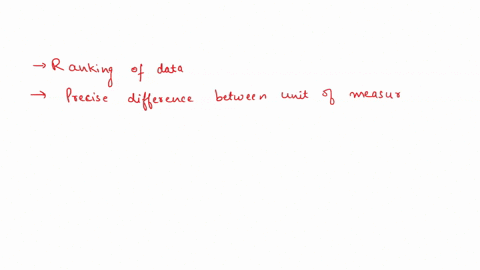 → Ranking of data
→ Precise difference between unit of measur